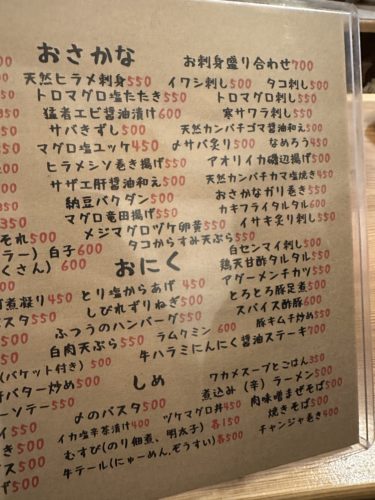 おさかな
お刺身盛り合わせ700
天然ヒラメ刺身550
イワシ刺し500
タコ刺し500
トロマグロ塩たたき550
トロマグロ刺し550
猛者エビ醤油漬け600
寒サワラ刺し550
サバきずし500
天然カンパチゴマ醤油和え500
マグロ塩ユッケ450
〆サバ炙り500
なめろう450
ヒラメシソ巻き揚げ550
アオリイカ磯辺揚げ500
サザエ肝醤油和え500
天然カンパチカマ塩焼き450
納豆バクダン500
おさかなガリ巻き550
マグロ竜田揚げ550
カキフライタルタル600
メジマグロヅケ卵黄550
イサキ炙り刺し550
タコからすみ天ぷら550
それ500
ラー)白子600
くさん)600
おにく
白センマイ刺し500
鶏天甘酢タルタル550
煮凝り450
とり塩からあげ450
アグーメンチカツ550
パスタ550
しびれずりねぎ500
とろとろ豚足煮500
ふつうのハンバーグ550
スパイス酢豚600
白肉天ぷら550
ラムクミン600
豚キムチ炒め550
(バケット付き)500
牛ハラミにんにく醤油ステーキ700
バター炒め500
しめ
ーソテー550
ワカメスープとごはん350
〆のパスタ500
煮込み(辛)ラーメン500
イカ塩辛茶漬け400
ヅケマグロ丼450
肉味噌まぜそば500
むすび(のり佃煮、明太子)各150
焼きそば500
牛テール(にゅーめん、ぞうすい)各500
チャンジャ巻き400